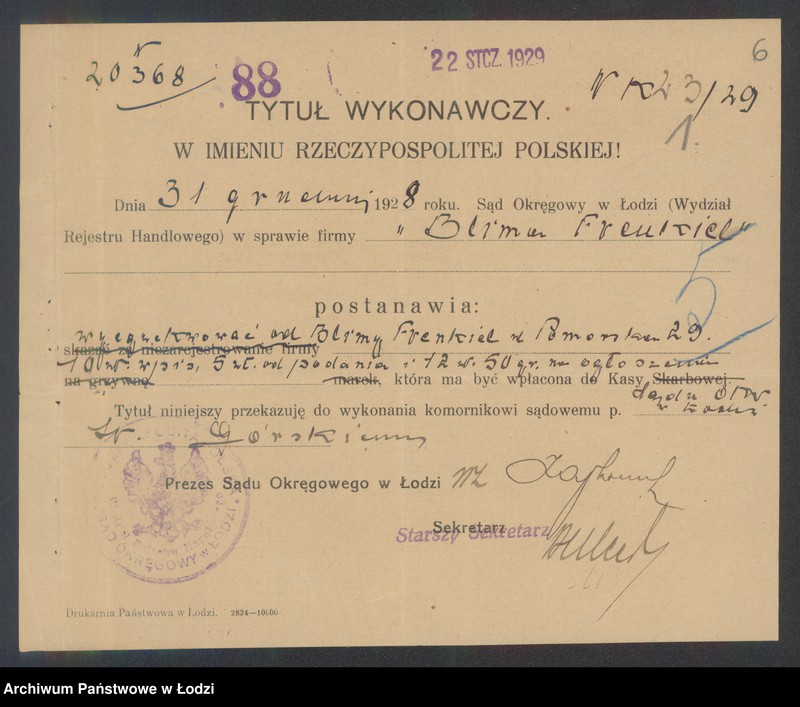 N 20368
88
22 STCZ. 1929
6
N K 23/29
1.
TYTUŁ WYKONAWCZY.
W IMIENIU RZECZYPOSPOLITEJ POLSKIEJ!
Dnia 31 grudnia 1928 roku. Sąd Okręgowy w Łodzi (Wydział
Rejestru Handlowego) w sprawie firmy „Blima Frenkiel"
5
postanawia:
wyegzekwować od Blimy Frenkiel ul Pomorska 29.
skazać za niezarejestrowanie firmy
10 zł. wpis, 5 zł. od podania i 12 zł. 50 gr. na ogłoszenie
na grzywnę marek, która ma być wpłacona do Kasy Skarbowej.
Sądu Okr. w Łodzi
Tytuł niniejszy przekazuję do wykonania komornikowi sądowemu p.
St. Górskiemu
Prezes Sądu Okręgowego w Łodzi wz
Sekretarz
Starszy Sekretarz
SĄD OKRĘGOWY w ŁODZI
Drukarnia Państwowa w Łodzi. 2824—10000
Archiwum Państwowe w Łodzi